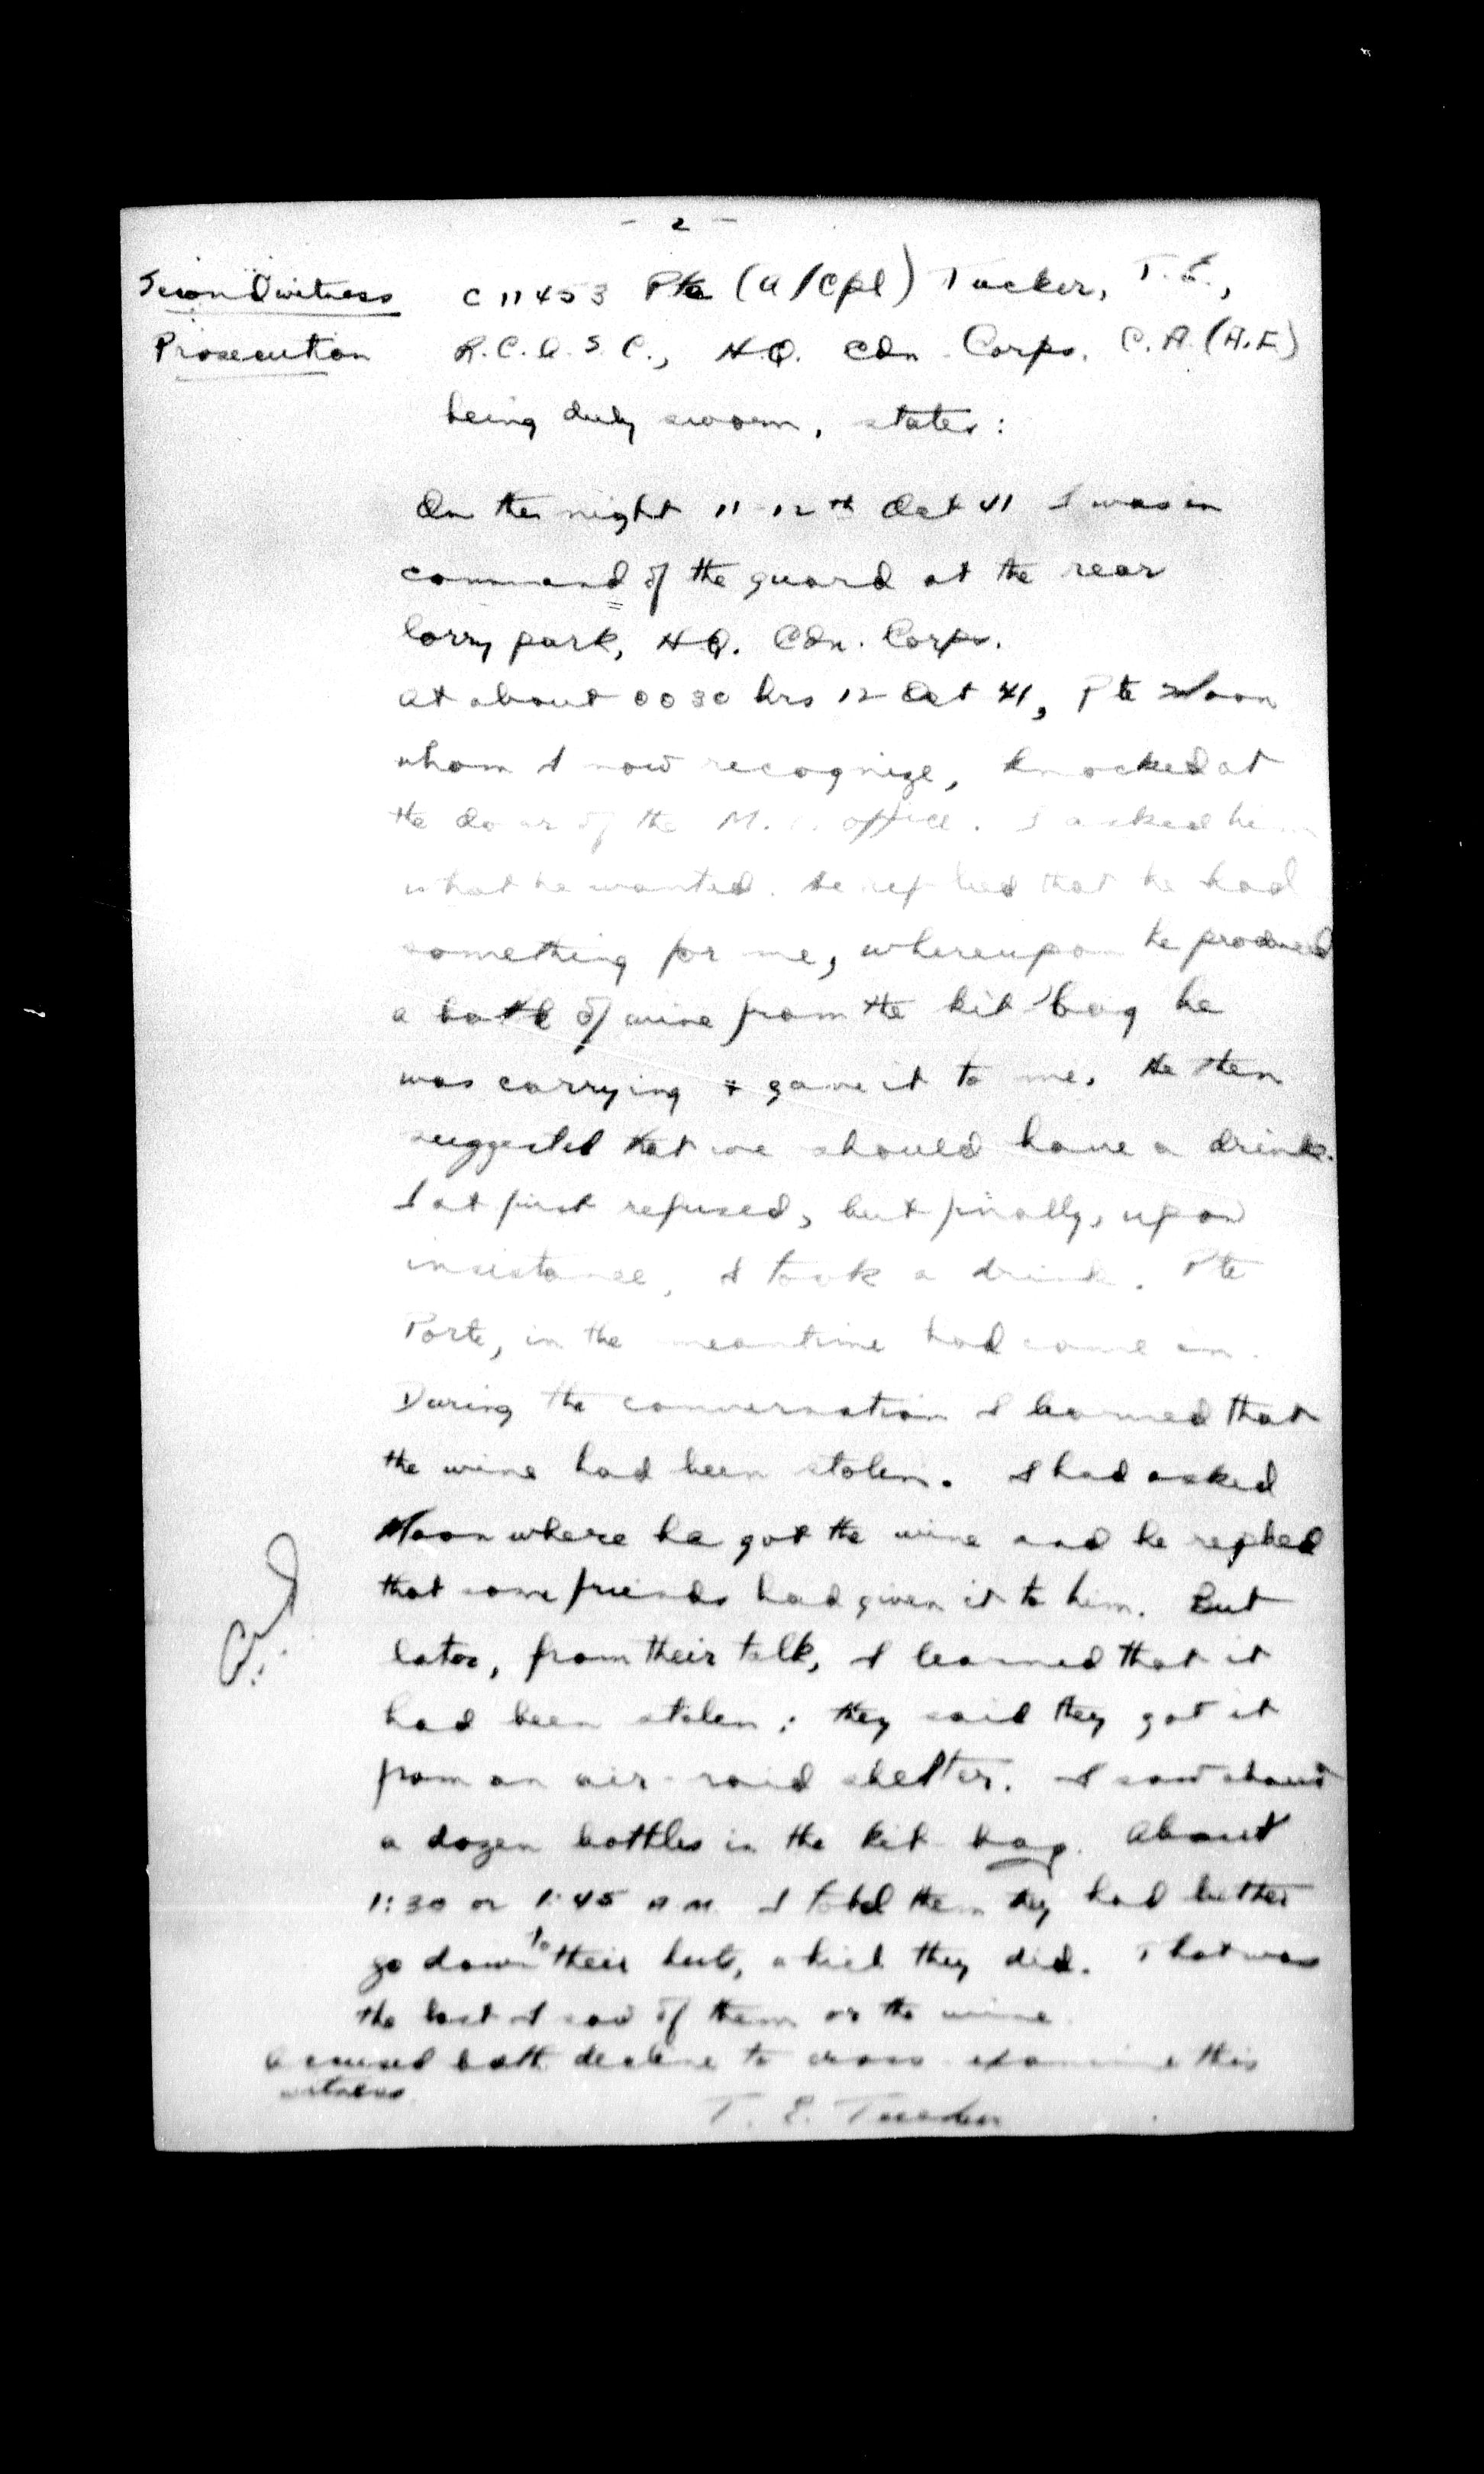 - 2 -
Second witness C 11453 Pte (A/Cpl) Tucker, T. E.,
Prosecution R.C.A.S.C., H.Q. Cdn. Corps. C.A. (A.F.)
being duly sworn, states:
On the night 11-12th Oct 41 I was in
command of the guard at the rear
lorry park, H.Q. Cdn. Corps.
At about 0030 hrs 12 Oct 41, Pte Moon
whom I now recognize, knocked at
the door of the office. I asked him
what he wanted. He replied that he had
something for me, whereupon he produced
a bottle of wine from the kit bag he
was carrying & gave it to me. He then
suggested that we should have a drink.
I at first refused, but finally, upon
insistance, I took a drink. Pte
Porte, in the meantime had come in.
During the conversation I learned that
the wine had been stolen. I had asked
Moon where he got the wine and he replied
that some friends had given it to him. But
later, from their talk, I learned that it
had been stolen; they said they got it
from an air-raid shelter. I saw about
a dozen bottles in the kit-bag. About
1:30 or 1:45 A.M. I told them they had better
go down to their huts, which they did. That was
the last I saw of them or the wine.
Accused both decline to cross-examine this
witness.
T. E. Tucker